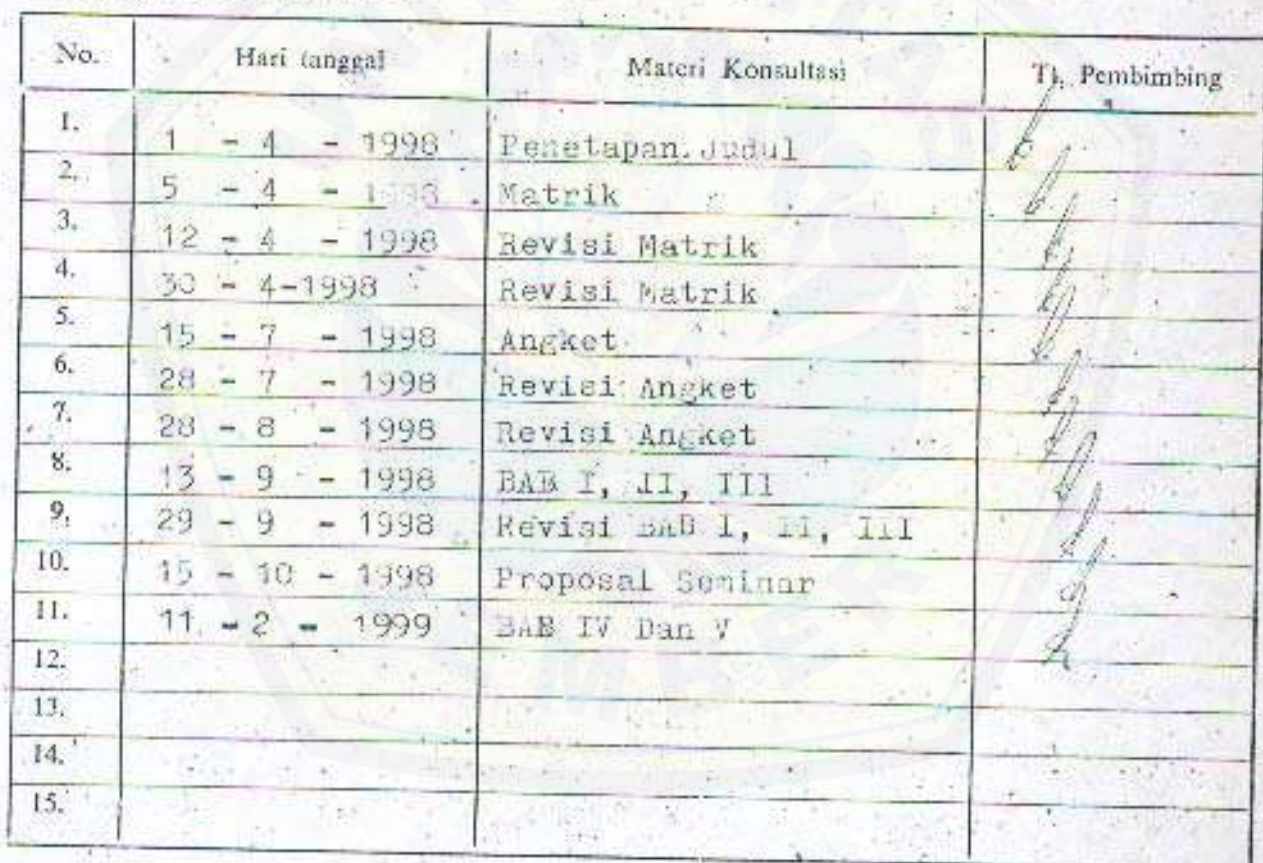 No. Hari tanggal Materi Konsultasi Tt. Pembimbing
1. 1 - 4 - 1998 Penetapan Judul
2. 5 - 4 - 1998 Matrik
3. 12 - 4 - 1998 Revisi Matrik
4. 30 - 4-1998 Revisi Matrik
5. 15 - 7 - 1998 Angket
6. 28 - 7 - 1998 Revisi Angket
7. 28 - 8 - 1998 Revisi Angket
8. 13 - 9 - 1998 BAB I, II, III
9. 29 - 9 - 1998 Revisi BAB I, II, III
10. 15 - 10 - 1998 Proposal Seminar
11. 11. - 2 - 1999 BAB IV Dan V
12.
13.
14.
15.